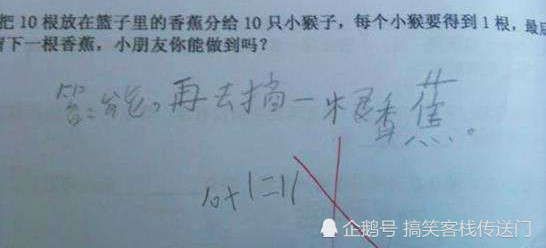 把10根放在篮子里的香蕉分给10只小猴子，每个小猴要得到1根，最后
下一根香蕉，小朋友你能做到吗？
答：能，再去摘一根香蕉。
10+1=11
企鹅号 搞笑客栈传送门